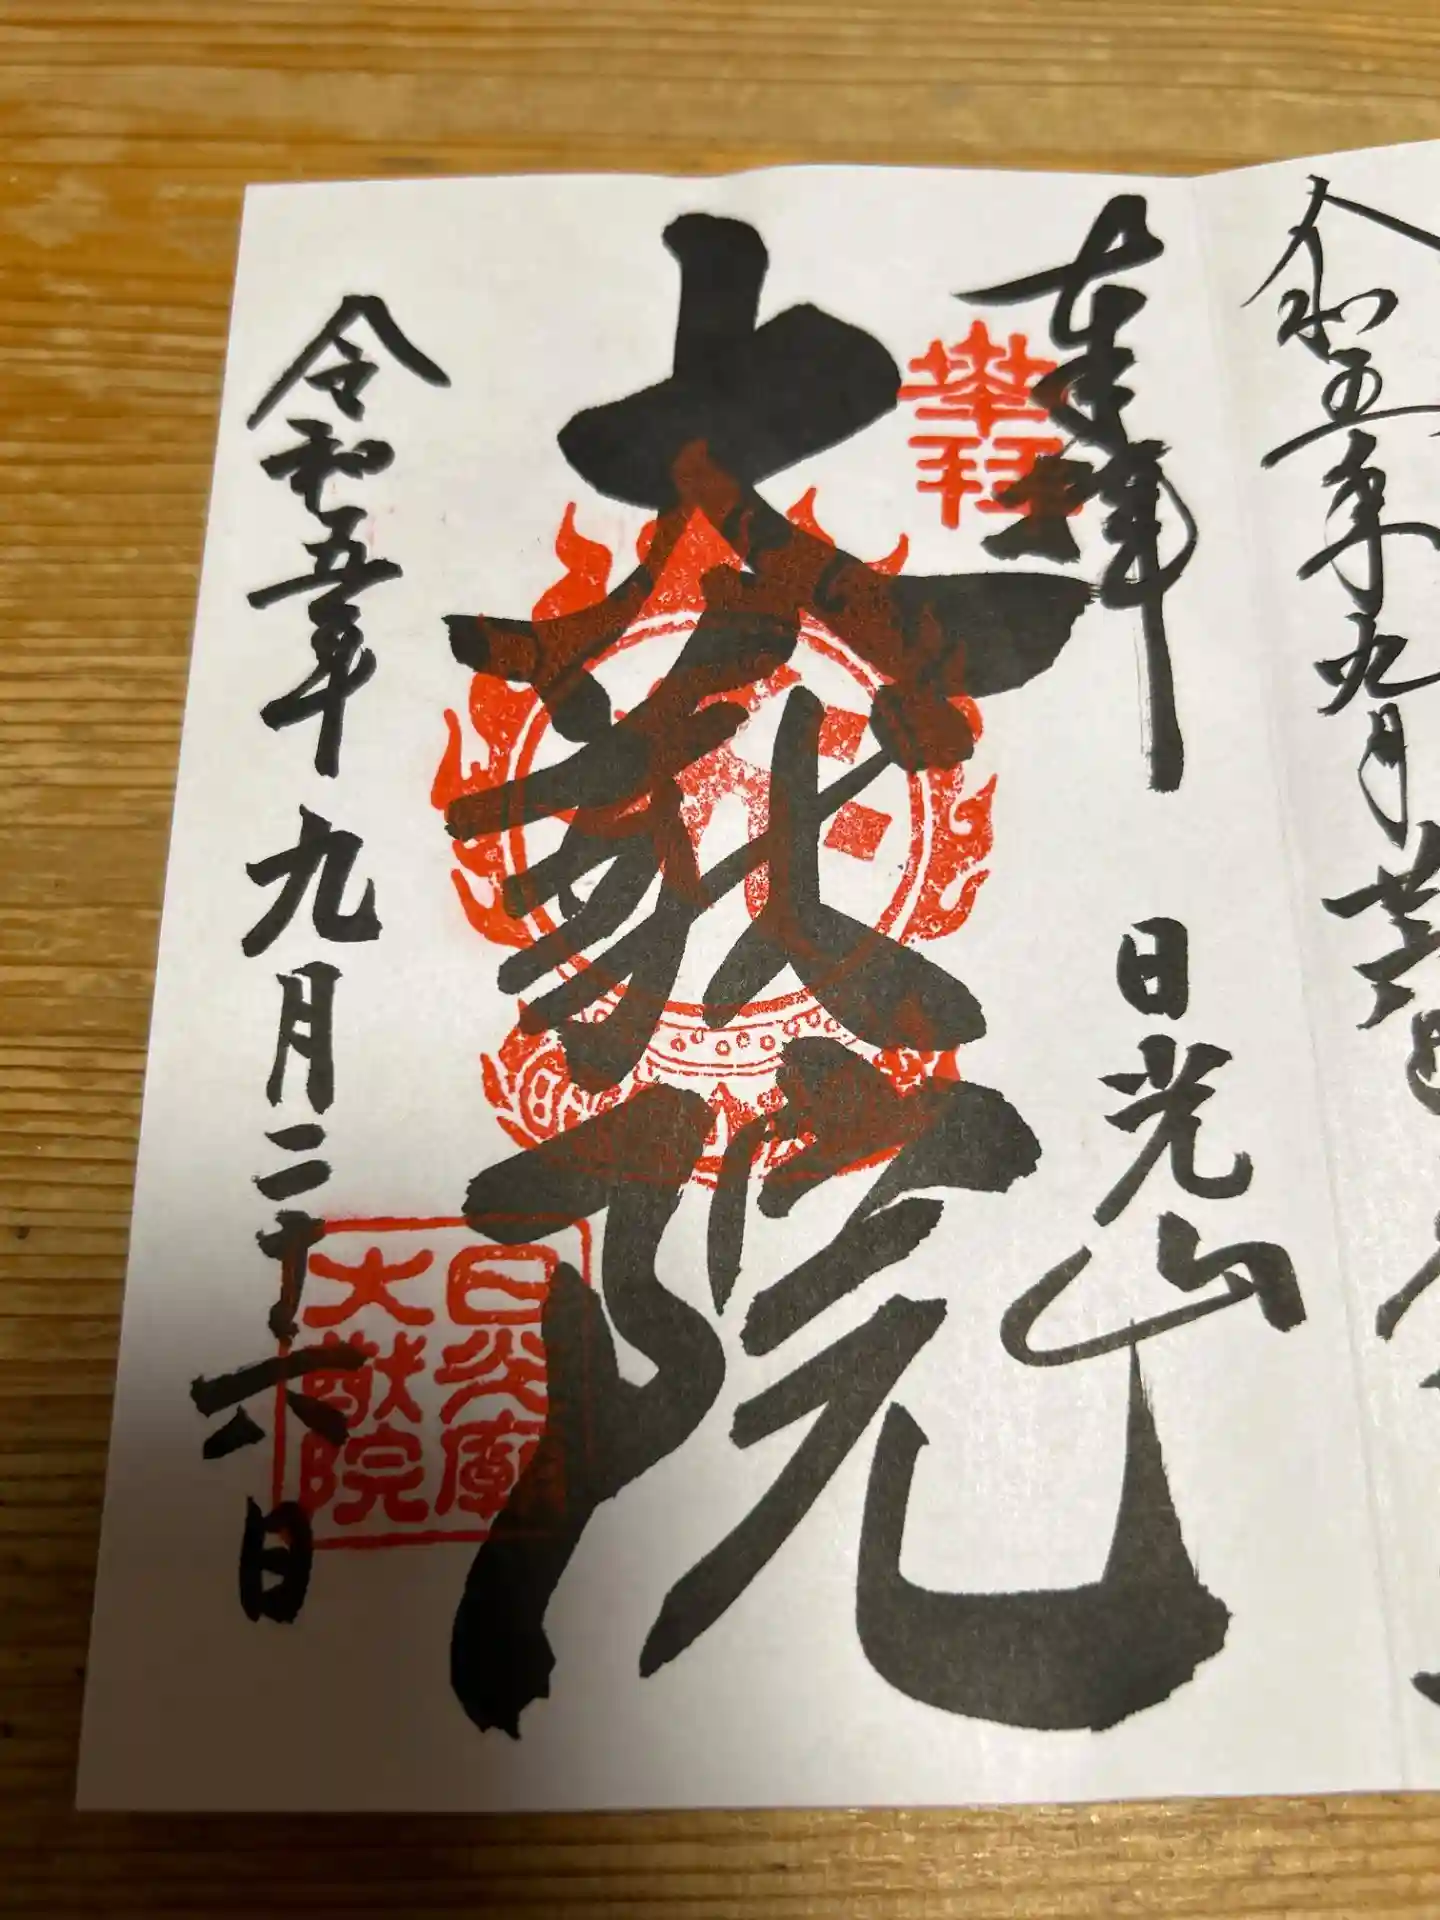 令和五年九月
奉拝
日光山
奉拝
大猷院
令和五年九月二十六日
日光廟
大猷院